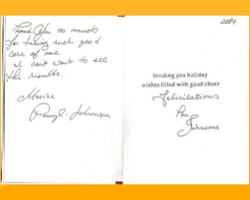 Thank you so much
for taking such good
care of me.
I can't wait to see
the results.
Maxine
Johnson
2004
Sending you holiday
wishes filled with good cheer
Felicitations
Johnsons